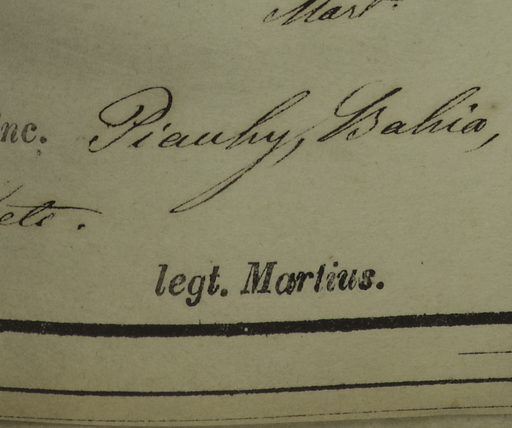 Mart.
nc. Piauhy, Bahia,
etc.
legt. Martius.